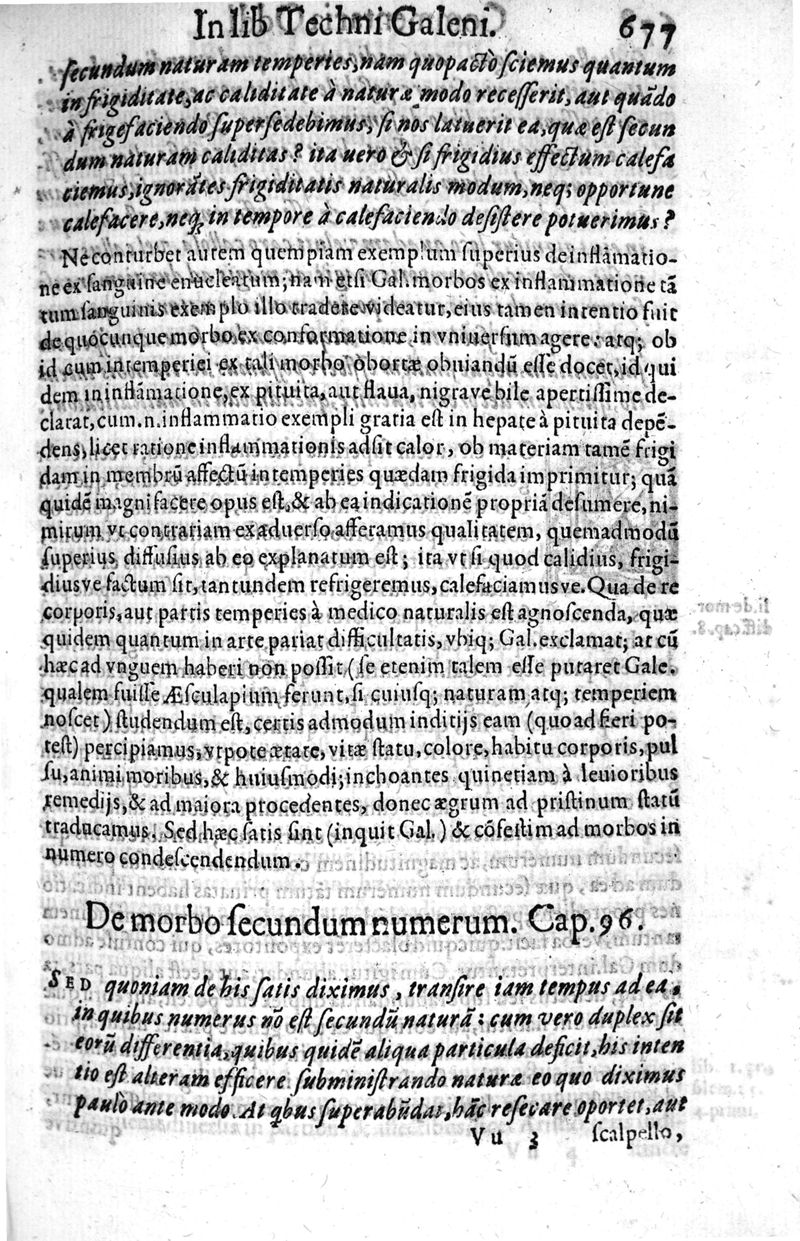 In lib Techni Galeni. 677
secundum naturam temperies, nam quopactò sciemus quantum
in frigiditate, ac caliditate à naturæ modo recesserit, aut quãdo
à frigefaciendo supersedebimus, si nos latuerit ea, quæ est secun
dum naturam caliditas? ita uero & si frigidius effectum calefa
ciemus, ignorãtes frigiditatis naturalis modum, neq; opportune
calefacere, neq; in tempore à calefaciendo desistere potuerimus?
Ne conturbet autem quempiam exemplum superius de inflãmatio-
ne ex sanguine enucleatum; nam etsi Gal. morbos ex inflammatione tã
tum sanguinis exemplo illo tradere videatur, eius tamen intentio fuit
de quocunque morbo ex conformatione in vniuersum agere: atq; ob
id cum intemperiei ex tali morbo obortæ obuiandũ esse docet, id qui
dem in inflãmatione, ex pituita, aut flaua, nigrave bile apertissime de-
clarat, cum .n. inflammatio exempli gratia est in hepate à pituita depẽ-
dens, licet ratione inflammationis adsit calor, ob materiam tamẽ frigi
dam in membrũ affectũ intemperies quædam frigida imprimitur; quã
quidẽ magni facere opus est, & ab ea indicationẽ propriã desumere, ni-
mirum vt contrariam ex aduerso afferamus qualitatem, quemadmodũ
superius diffusius ab eo explanatum est; ita vt si quod calidius, frigi-
diusve factum sit, tantundem refrigeremus, calefaciamusve. Qua de re
corporis, aut partis temperies à medico naturalis est agnoscenda, quæ
quidem quantum in arte pariat difficultatis, vbiq; Gal. exclamat; at cũ
hæc ad vnguem haberi non possit (se etenim talem esse putaret Gale.
qualem fuisse Æsculapium ferunt, si cuiusq; naturam atq; temperiem
noscet) studendum est, certis admodum inditijs eam (quoad fieri po-
test) percipiamus, vtpote ætate, vitæ statu, colore, habitu corporis, pul
su, animi moribus, & huiusmodi; inchoantes quinetiam à leuioribus
remedijs, & ad maiora procedentes, donec ægrum ad pristinum statũ
traducamus. Sed hæc satis sint (inquit Gal.) & cõfestim ad morbos in
numero condescendendum.
De morbo secundum numerum. Cap. 96.
SED quoniam de his satis diximus, transire iam tempus ad ea,
in quibus numerus nõ est secundũ naturã: cum vero duplex sit
eorũ differentia, quibus quidẽ aliqua particula deficit, his inten
tio est alteram efficere subministrando naturæ eo quo diximus
paulo ante modo. At qbus superabũdat, hãc resecare oportet, aut
Vu 3 scalpello,